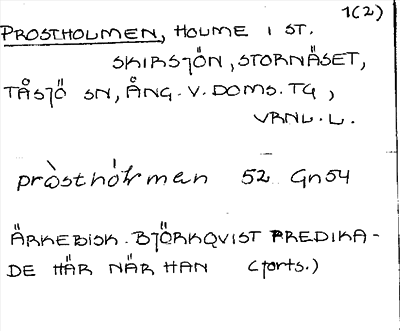 1(2)
PROSTHOLMEN, HOLME I ST.
SKIRSJÖN, STORNÄSET,
TÅSJÖ SN, ÅNG. V. DOMS. TG,
VRNL. L.
pròsthól'men 52 Gn54
ÄRKEBISK. BJÖRKQVIST PREDIKA-
DE HÄR NÄR HAN (forts.)